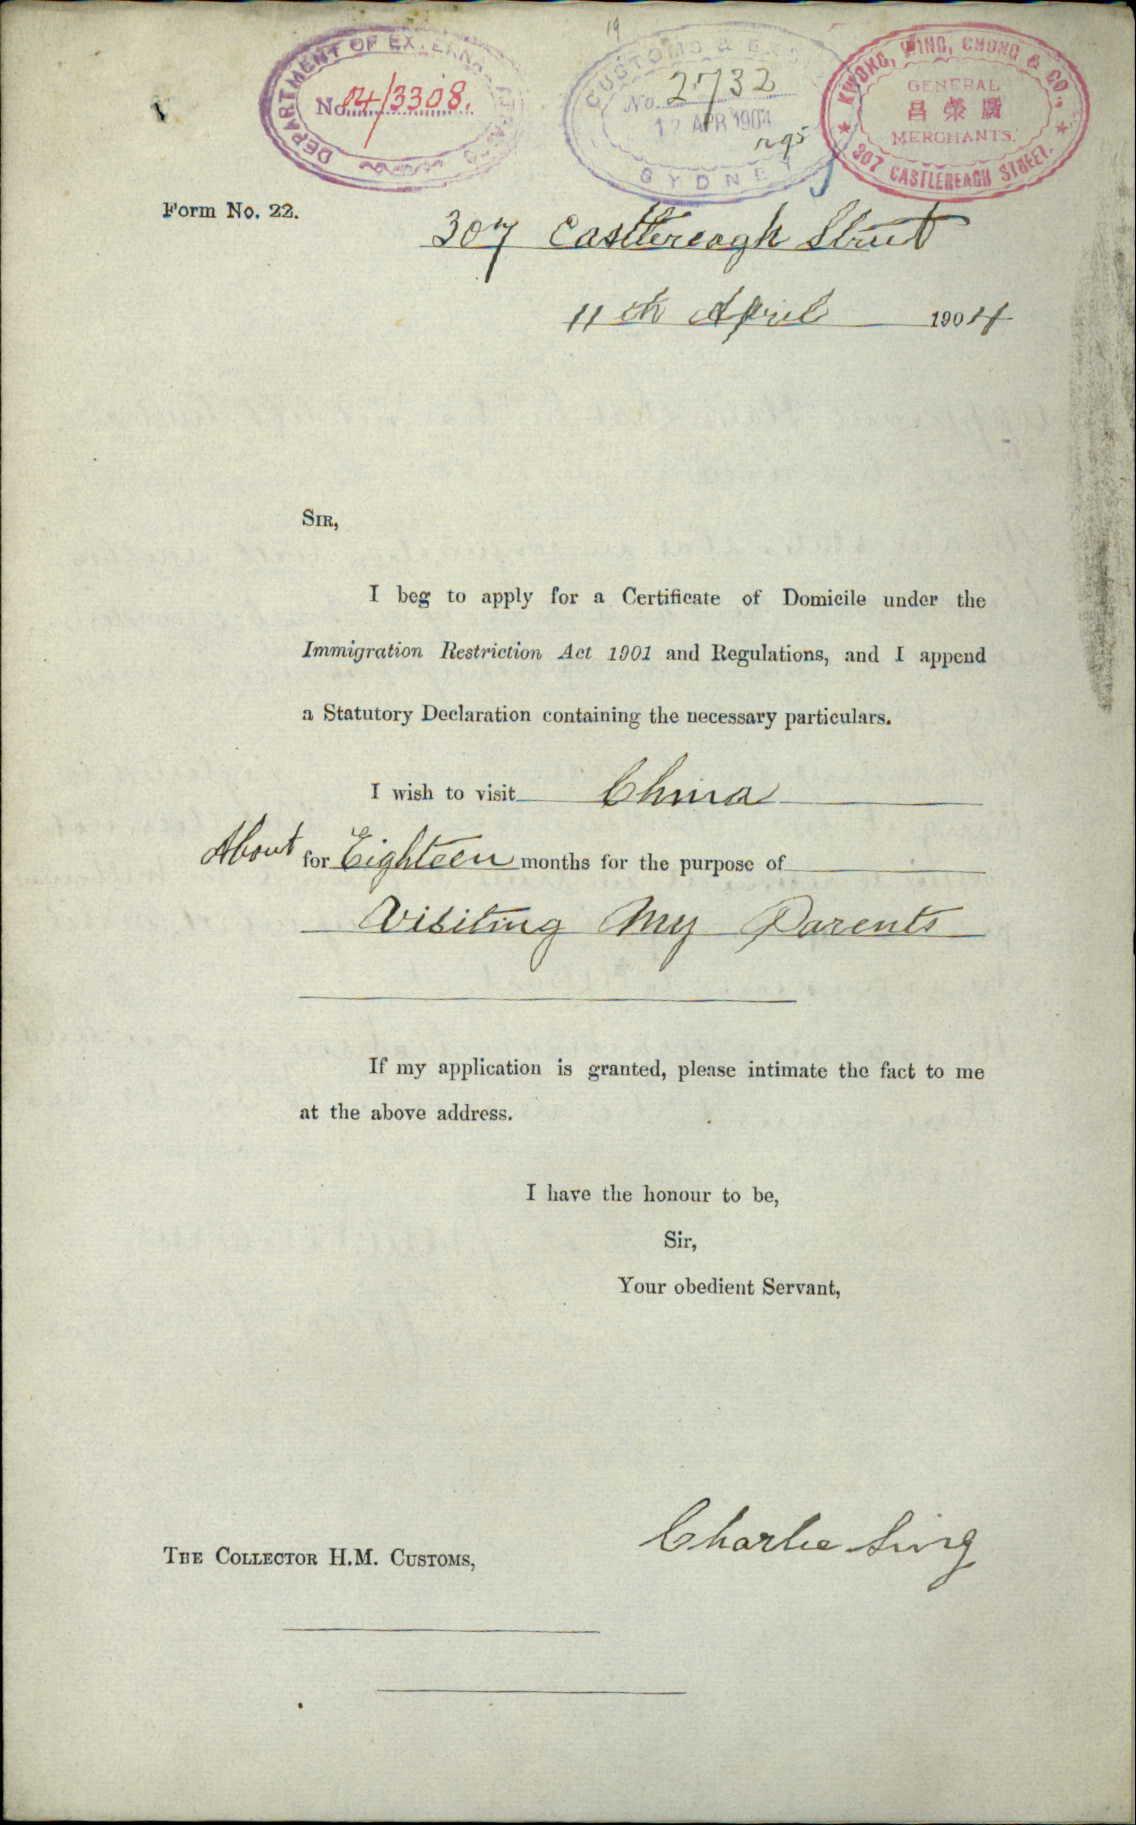 19
DEPARTMENT OF EXTERNAL AFFAIRS
No. 04/3308.
CUSTOMS & E
No. 2732
12 APR 1904
SYDNEY
KWONG, WING, CHONG & CO.,
GENERAL
昌榮廣
MERCHANTS.
307 CASTLEREAGH STREET.
Form No. 22.
307 Castlereagh Street
11th April 1904
SIR,
I beg to apply for a Certificate of Domicile under the
Immigration Restriction Act 1901 and Regulations, and I append
a Statutory Declaration containing the necessary particulars.
I wish to visit China
About for Eighteen months for the purpose of
Visiting My Parents
If my application is granted, please intimate the fact to me
at the above address.
I have the honour to be,
Sir,
Your obedient Servant,
Charlie Sing
THE COLLECTOR H.M. CUSTOMS,